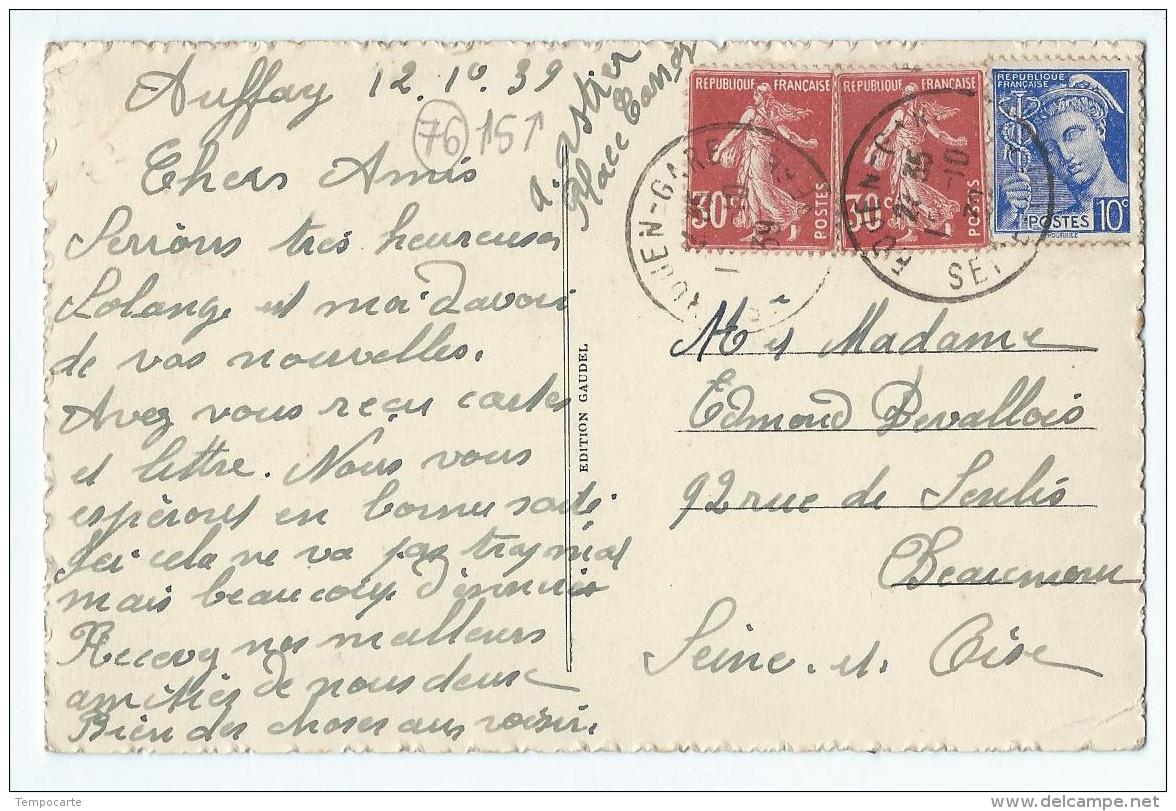 Auffay 12.10.39
76 15↑
Place
Chers Amis
Serions très heureuses
Solange et moi d'avoir
de vos nouvelles.
Avez vous reçu cartes
et lettre. Nous vous
espérons en bonne santé.
Ici cela ne va pas trop mal
mais beaucoup d'ennuis
Recevez nos meilleurs
amitiés de nous deux
Bien des choses aux voisins.
EDITION GAUDEL
REPUBLIQUE FRANÇAISE
30c
POSTES
REPUBLIQUE FRANÇAISE
30c
POSTES
REPUBLIQUE
FRANÇAISE
POSTES 10c
ROUEN-GARE
ROUEN-GARE
Mr et Madame
Edmond Devallois
92 rue de Senlis
Beaumont
Seine-et-Oise
Tempocarte
www.delcampe.net